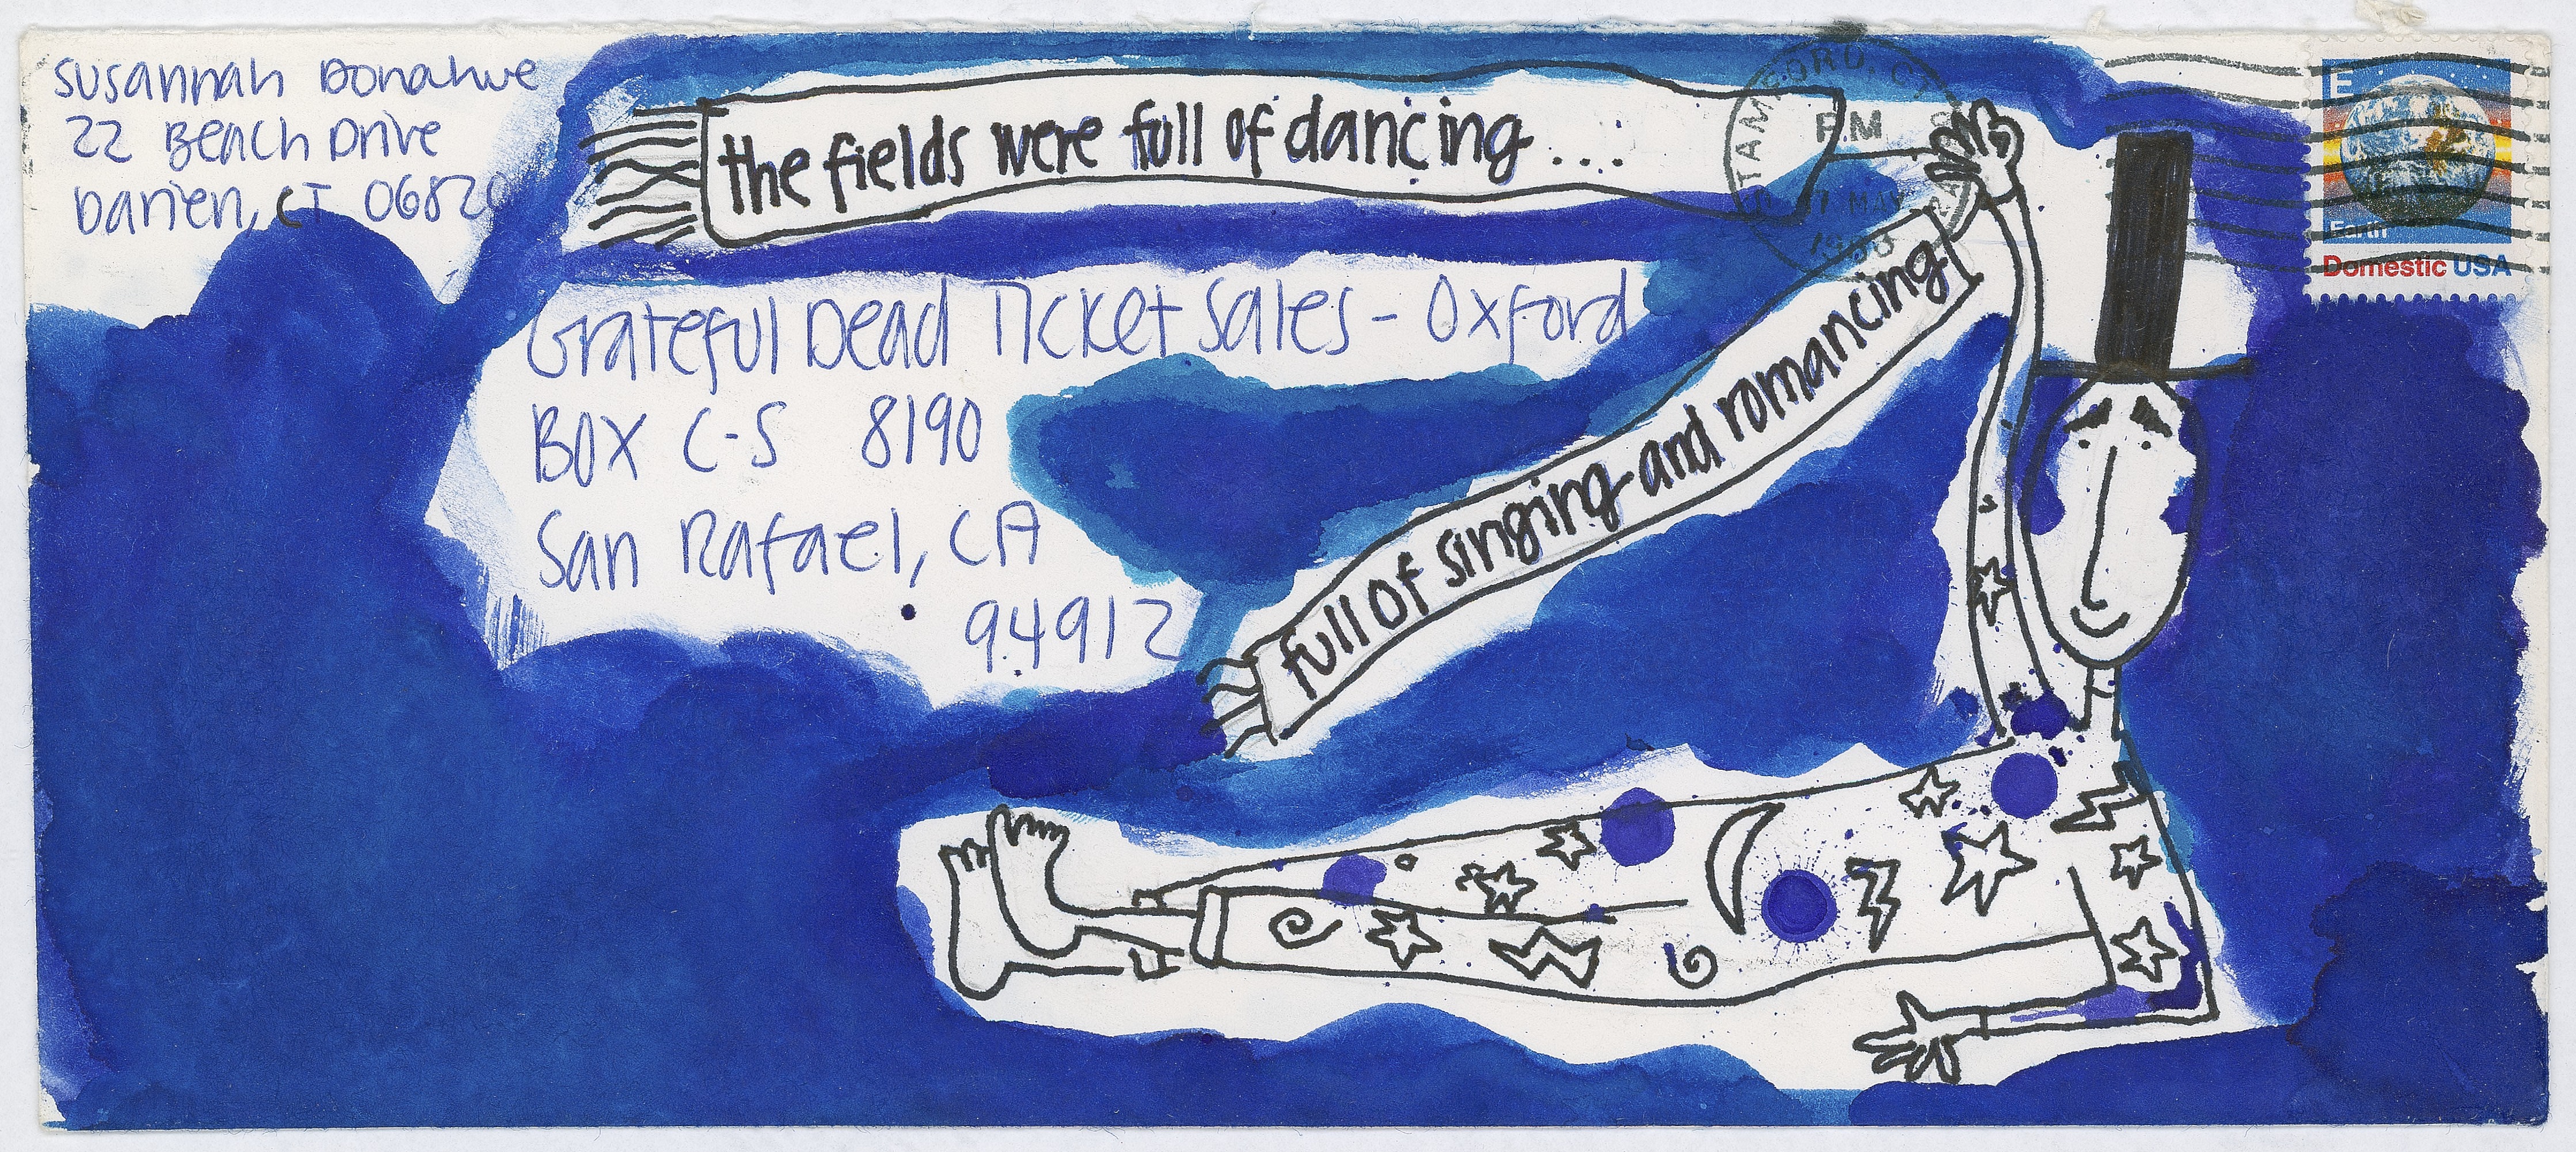 Susannah Donahue
22 Beach Drive
Darien, CT 06820
the fields were full of dancing....
full of singing and romancing
Grateful Dead Ticket Sales - Oxford
BOX C-S 8190
San Rafael, CA
94912
STAMFORD, CT
PM
MAY
E
Earth
Domestic USA